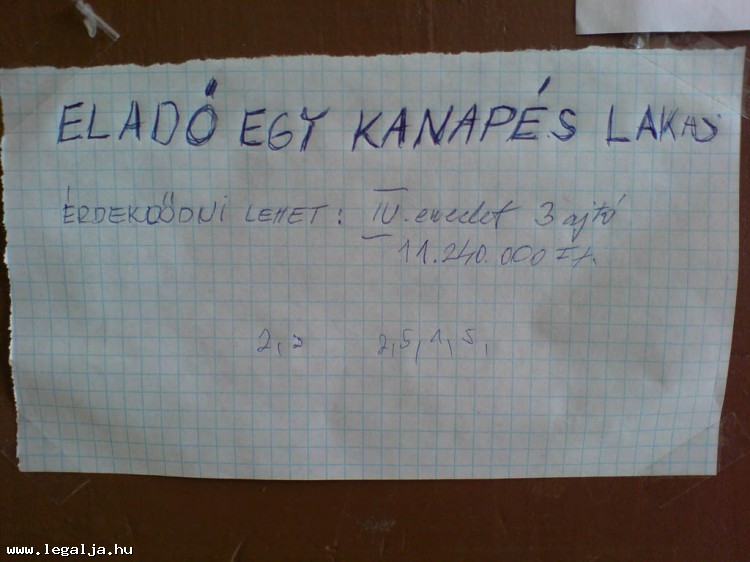 ELADÓ EGY KANAPÉS LAKÁS
ÉRDEKDŐDNI LEHET: IV. emelet 3 ajtó
11.240.000 Ft.
2, 2 2,5,1,5,
www.legalja.hu